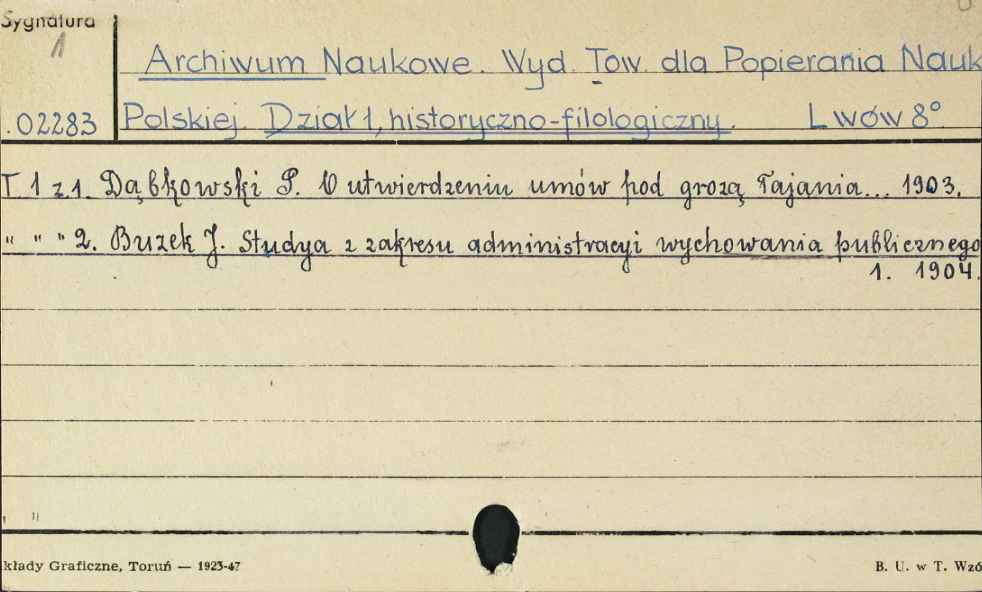 Sygnatura
1
Archiwum Naukowe. Wyd. Tow. dla Popierania Nauk
.02283 Polskiej. Dział 1, historyczno-filologiczny. Lwów 8°
T. 1 z. 1. Dąbkowski P. O utwierdzeniu umów pod grozą łajania... 1903.
" " " 2. Buzek J. Studya z zakresu administracyi wychowania publicznego
1. 1904.
kłady Graficzne, Toruń — 1923-47
B. U. w T. Wzó